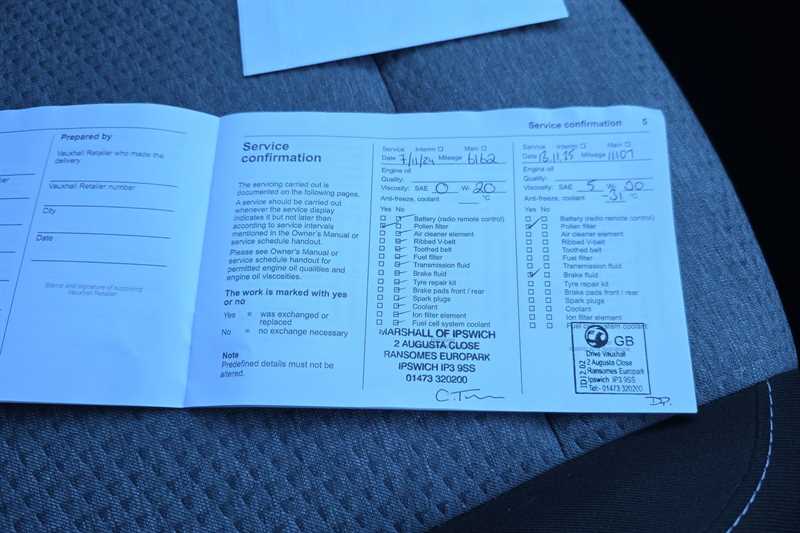 Prepared by
Vauxhall Retailer who made the
delivery
Vauxhall Retailer number
City
Date
Stamp and signature of supplying
Vauxhall Retailer
Service
confirmation
The servicing carried out is
documented on the following pages.
A service should be carried out
whenever the service display
indicates it but not later than
according to service intervals
mentioned in the Owner's Manual or
service schedule handout.
Please see Owner's Manual or
service schedule handout for
permitted engine oil qualities and
engine oil viscosities.
The work is marked with yes
or no
Yes = was exchanged or
replaced
No = no exchange necessary
Note
Predefined details must not be
altered.
Service confirmation 5
Service Interim Main
Date 7/11/24 Mileage 6162
Engine oil
Quality:
Viscosity: SAE 0 W- 20
Anti-freeze, coolant °C
Yes No
Battery (radio remote control)
Pollen filter
Air cleaner element
Ribbed V-belt
Toothed belt
Fuel filter
Transmission fluid
Brake fluid
Tyre repair kit
Brake pads front / rear
Spark plugs
Coolant
Ion filter element
Fuel cell system coolant
MARSHALL OF IPSWICH
2 AUGUSTA CLOSE
RANSOMES EUROPARK
IPSWICH IP3 9SS
01473 320200
Service Interim Main
Date 13.11.25 Mileage 11107
Engine oil
Quality:
Viscosity: SAE 5 W- 30
Anti-freeze, coolant -31 °C
Yes No
Battery (radio remote control)
Pollen filter
Air cleaner element
Ribbed V-belt
Toothed belt
Fuel filter
Transmission fluid
Brake fluid
Tyre repair kit
Brake pads front / rear
Spark plugs
Coolant
Ion filter element
Fuel cell system coolant
GB
Drive Vauxhall
2 Augusta Close
Ransomes Europark
Ipswich IP3 9SS
Tel:- 01473 320200
DP.